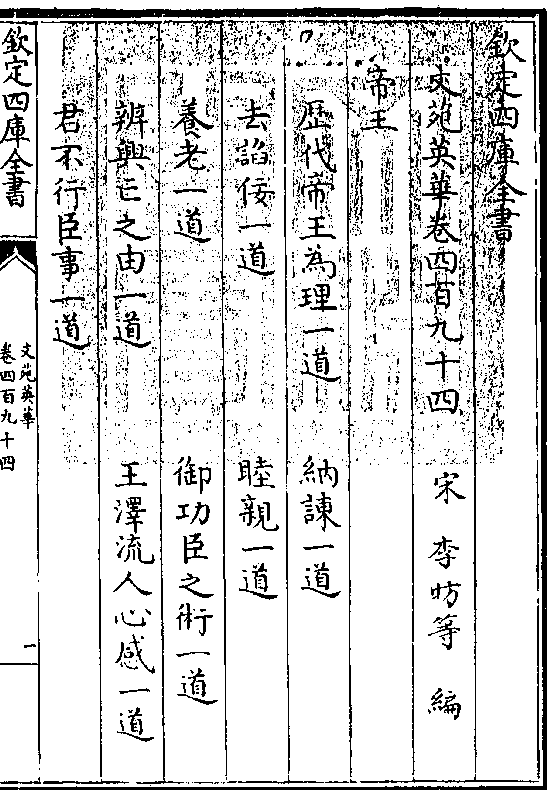 欽定四庫全書
文苑英華卷四百九十四　宋　李昉等　編
帝王
歷代帝王為理一道　納諫一道
去諂佞一道　睦親一道
養老一道　御功臣之術一道
辨興亡之由一道　王澤流人心感一道
君不行臣事一道
欽定四庫全書
文苑英華
卷四百九十四
一